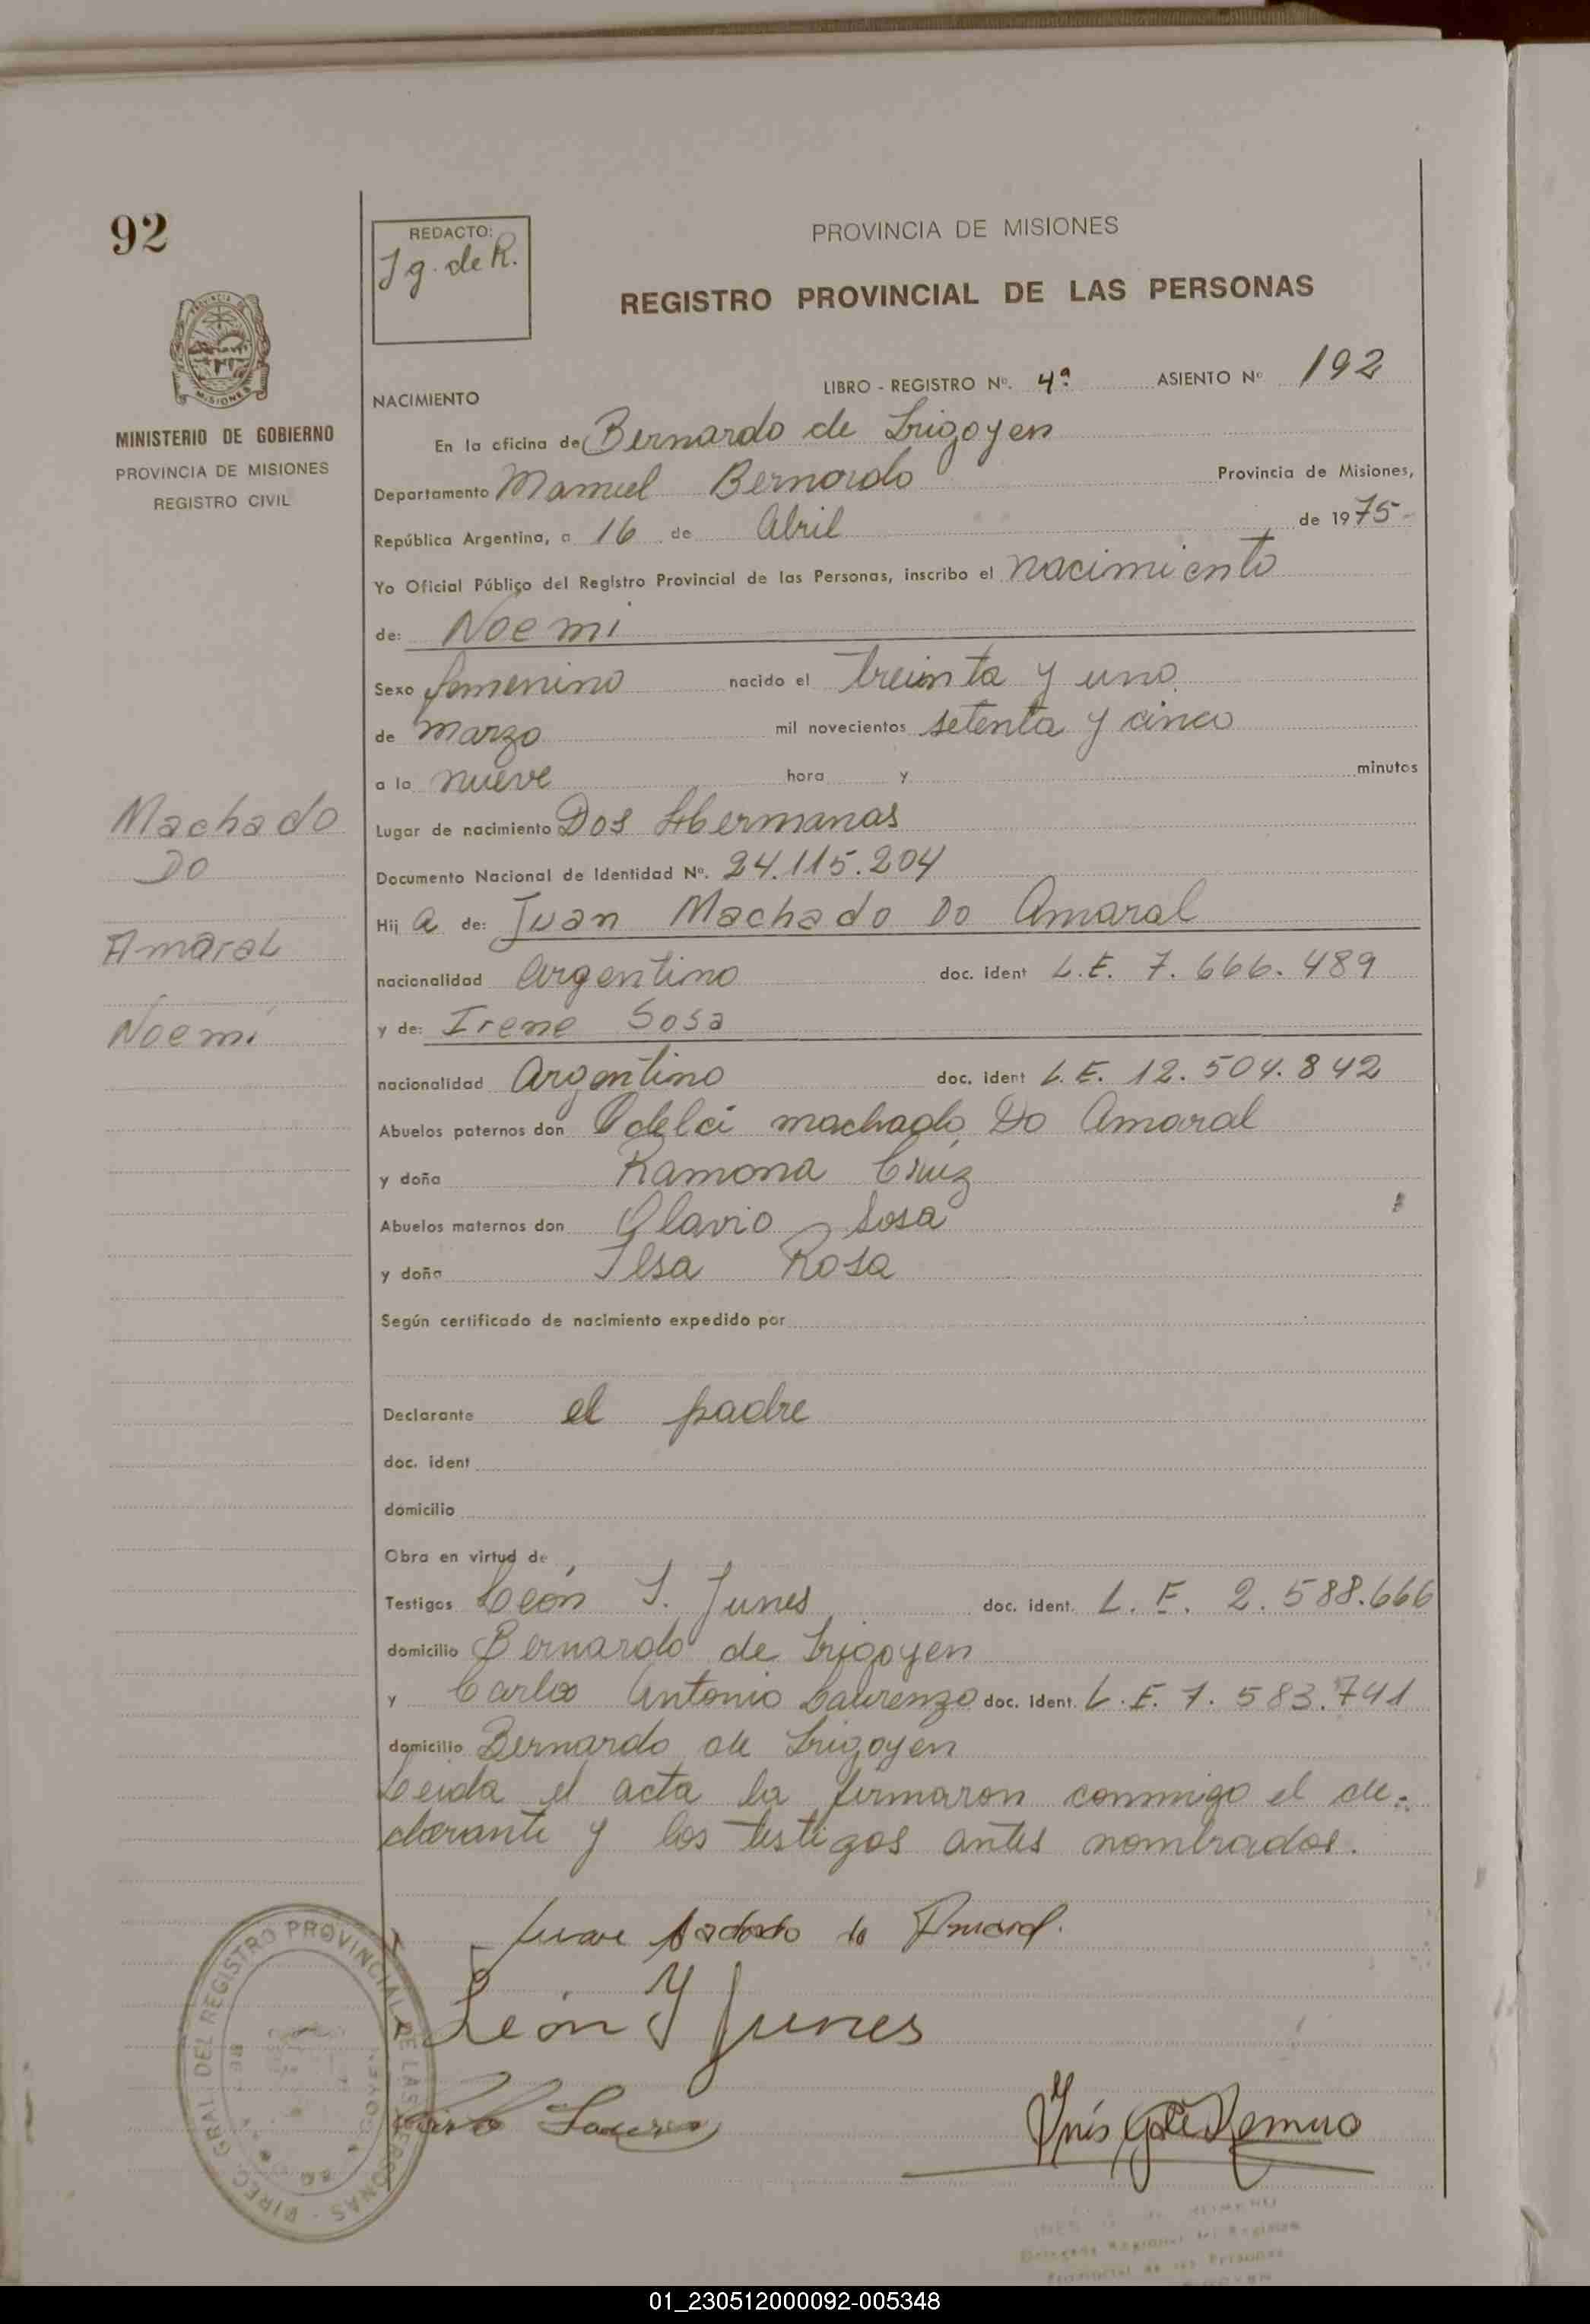 92
REDACTO:
Ig. de R.
PROVINCIA DE MISIONES
REGISTRO PROVINCIAL DE LAS PERSONAS
MINISTERIO DE GOBIERNO
PROVINCIA DE MISIONES
REGISTRO CIVIL
NACIMIENTO LIBRO - REGISTRO Nº. 4º ASIENTO Nº 192
En la oficina de Bernardo de Irigoyen
Departamento Manuel Bernardo Provincia de Misiones,
República Argentina, a 16 de Abril de 1975-
Yo Oficial Público del Registro Provincial de las Personas, inscribo el nacimiento
de: Noemi
Sexo femenino nacido el treinta y uno
de marzo mil novecientos setenta y cinco
a la nueve hora y minutos
Lugar de nacimiento Dos Hermanas
Documento Nacional de Identidad Nº. 24.115.204
Hij a de: Juan Machado Do Amaral
nacionalidad Argentino doc. ident L.E. 7.666.489
y de: Irene Sosa
nacionalidad Argentino doc. ident L.E. 12.504.842
Abuelos paternos don Odelci machado Do Amaral
y doña Ramona Cruz
Abuelos maternos don Olavio Sosa
y doña Ilsa Rosa
Según certificado de nacimiento expedido por
Declarante el padre
doc. ident
domicilio
Obra en virtud de
Testigos León I. Junes doc. ident. L.E. 2.588.666
domicilio Bernardo de Irigoyen
y Carlos Antonio Laurenzo doc. ident. L.E. 7.583.741
domicilio Bernardo de Irigoyen
Leida el acta la firmaron conmigo el de-
clarante y los testigos antes nombrados.
Machado
Do
Amaral
Noemí
León Y Junes
DIREC. GRAL. DEL REGISTRO PROVINCIAL DE LAS PERSONAS
Delegada Regional del Registro
Provincial de las Personas
01_230512000092-005348